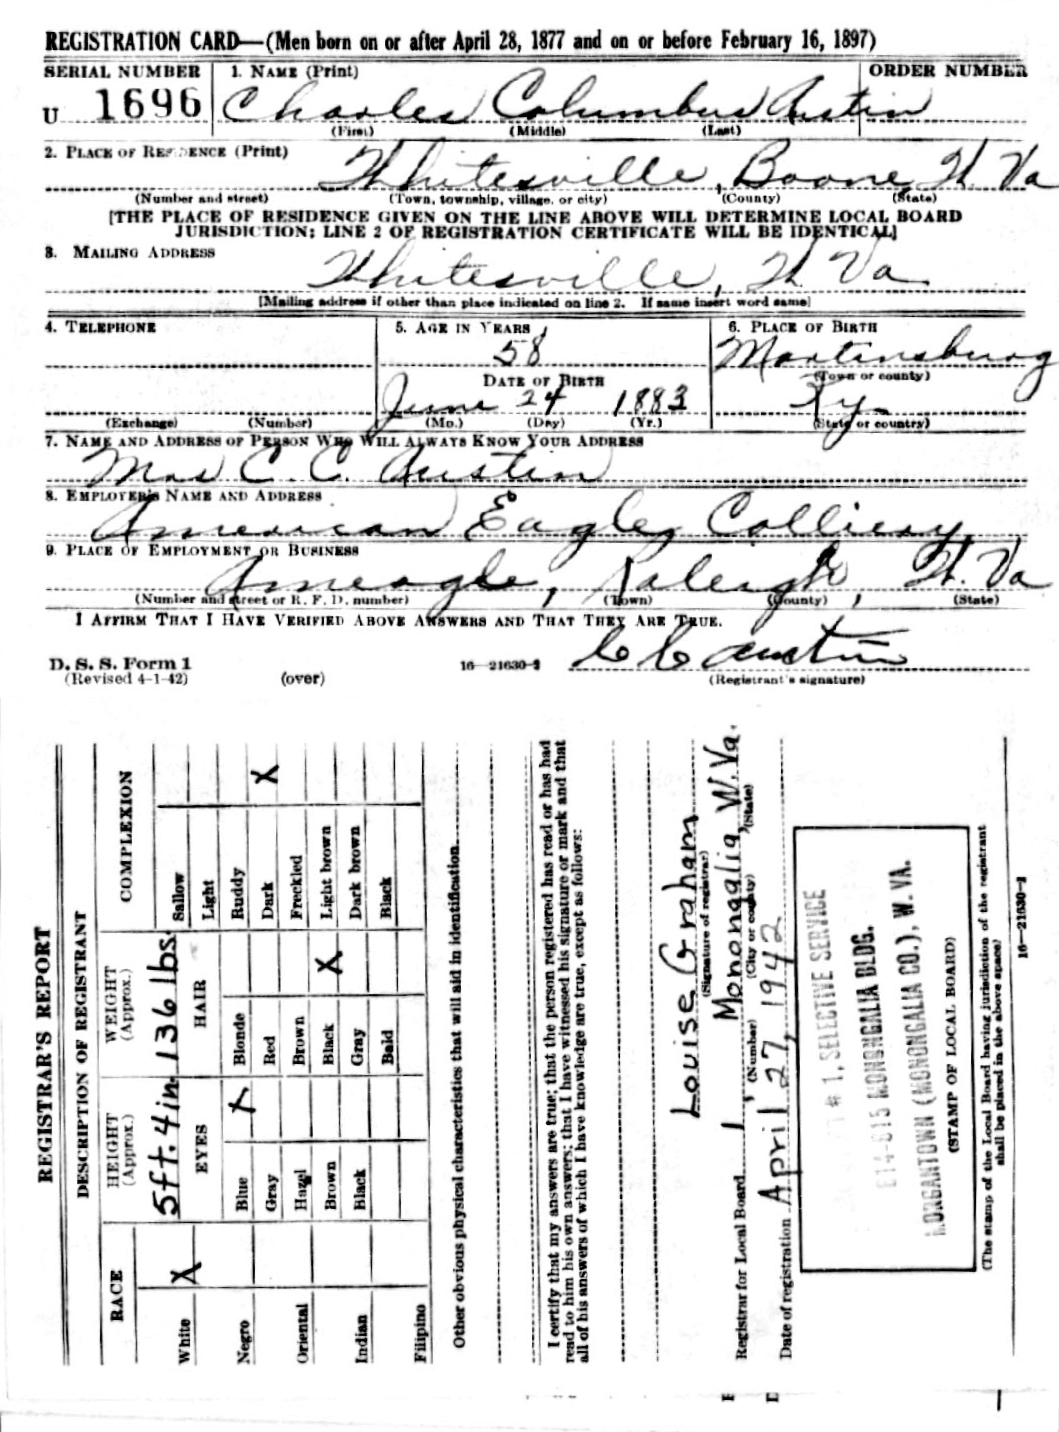 REGISTRATION CARD—(Men born on or after April 28, 1877 and on or before February 16, 1897)
SERIAL NUMBER
1. NAME (Print)
ORDER NUMBER
U 1696
Charles Columbus Austin
(First) (Middle) (Last)
2. PLACE OF RESIDENCE (Print)
Whitesville, Boone, W. Va
(Number and street) (Town, township, village, or city) (County) (State)
[THE PLACE OF RESIDENCE GIVEN ON THE LINE ABOVE WILL DETERMINE LOCAL BOARD
JURISDICTION; LINE 2 OF REGISTRATION CERTIFICATE WILL BE IDENTICAL]
3. MAILING ADDRESS
Whitesville, W. Va
[Mailing address if other than place indicated on line 2. If same insert word same]
4. TELEPHONE
5. AGE IN YEARS
6. PLACE OF BIRTH
58
Martinsburg
(Town or county)
DATE OF BIRTH
June 24 1883
Ky
(Exchange) (Number)
(Mo.) (Day) (Yr.)
(State or country)
7. NAME AND ADDRESS OF PERSON WHO WILL ALWAYS KNOW YOUR ADDRESS
Mrs C. C. Austin
8. EMPLOYER'S NAME AND ADDRESS
American Eagle Colliery
9. PLACE OF EMPLOYMENT OR BUSINESS
Ameagle, Raleigh, W. Va
(Number and street or R. F. D. number) (Town) (County) (State)
I AFFIRM THAT I HAVE VERIFIED ABOVE ANSWERS AND THAT THEY ARE TRUE.
C C Austin
D. S. S. Form 1
(Revised 4-1-42) (over)
16—21630-2
(Registrant's signature)
REGISTRAR'S REPORT
DESCRIPTION OF REGISTRANT
RACE
HEIGHT
(Approx.)
WEIGHT
(Approx.)
COMPLEXION
5ft. 4in.
136 lbs.
White X
Negro
Oriental
Indian
Filipino
EYES
Blue X
Gray
Hazel
Brown
Black
HAIR
Blonde
Red
Brown
Black X
Gray
Bald
Sallow
Light
Ruddy
Dark X
Freckled
Light brown
Dark brown
Black
Other obvious physical characteristics that will aid in identification
I certify that my answers are true; that the person registered has read or has had
read to him his own answers; that I have witnessed his signature or mark and that
all of his answers of which I have knowledge are true, except as follows:
Louise Graham
(Signature of registrar)
Registrar for Local Board 1, Monongalia, W. Va.
(Number) (City or county) (State)
Date of registration April 27, 1942
# 1, SELECTIVE SERVICE
614-615 MONONGALIA BLDG.
MORGANTOWN (MONONGALIA CO.), W. VA.
(STAMP OF LOCAL BOARD)
(The stamp of the Local Board having jurisdiction of the registrant
shall be placed in the above space)
16—21630-2